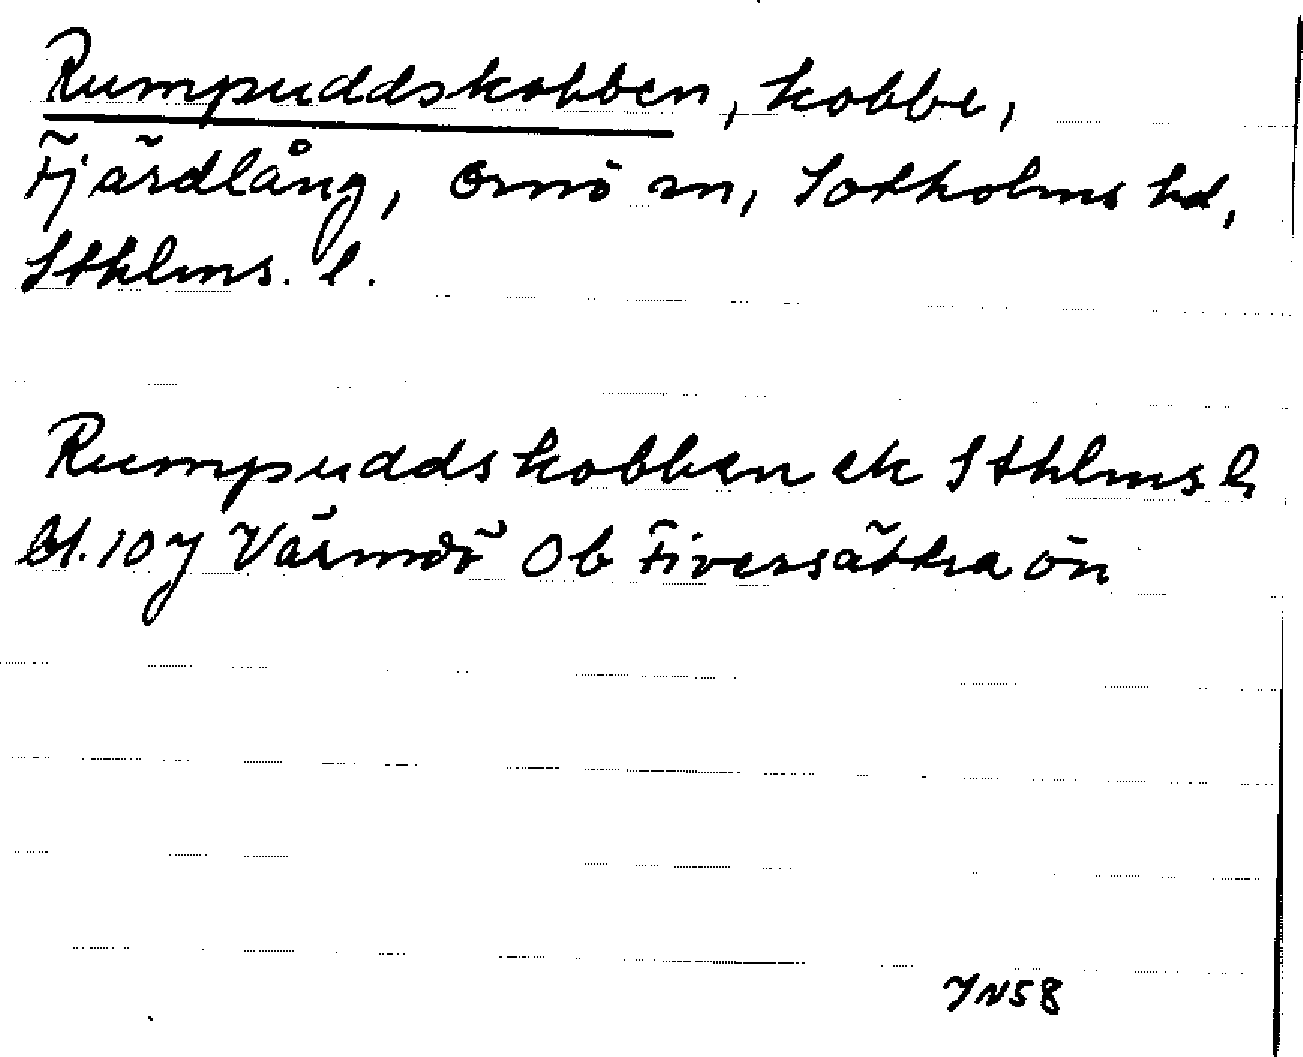 Rumpuddskobben, kobbe,
Fjärdlång, Ornö sn, Sotholms hd,
Sthlms. l.
Rumpuddskobben ek Sthlms l,
bl. 107 Värmdö Ob Fiversätra ön
YN58